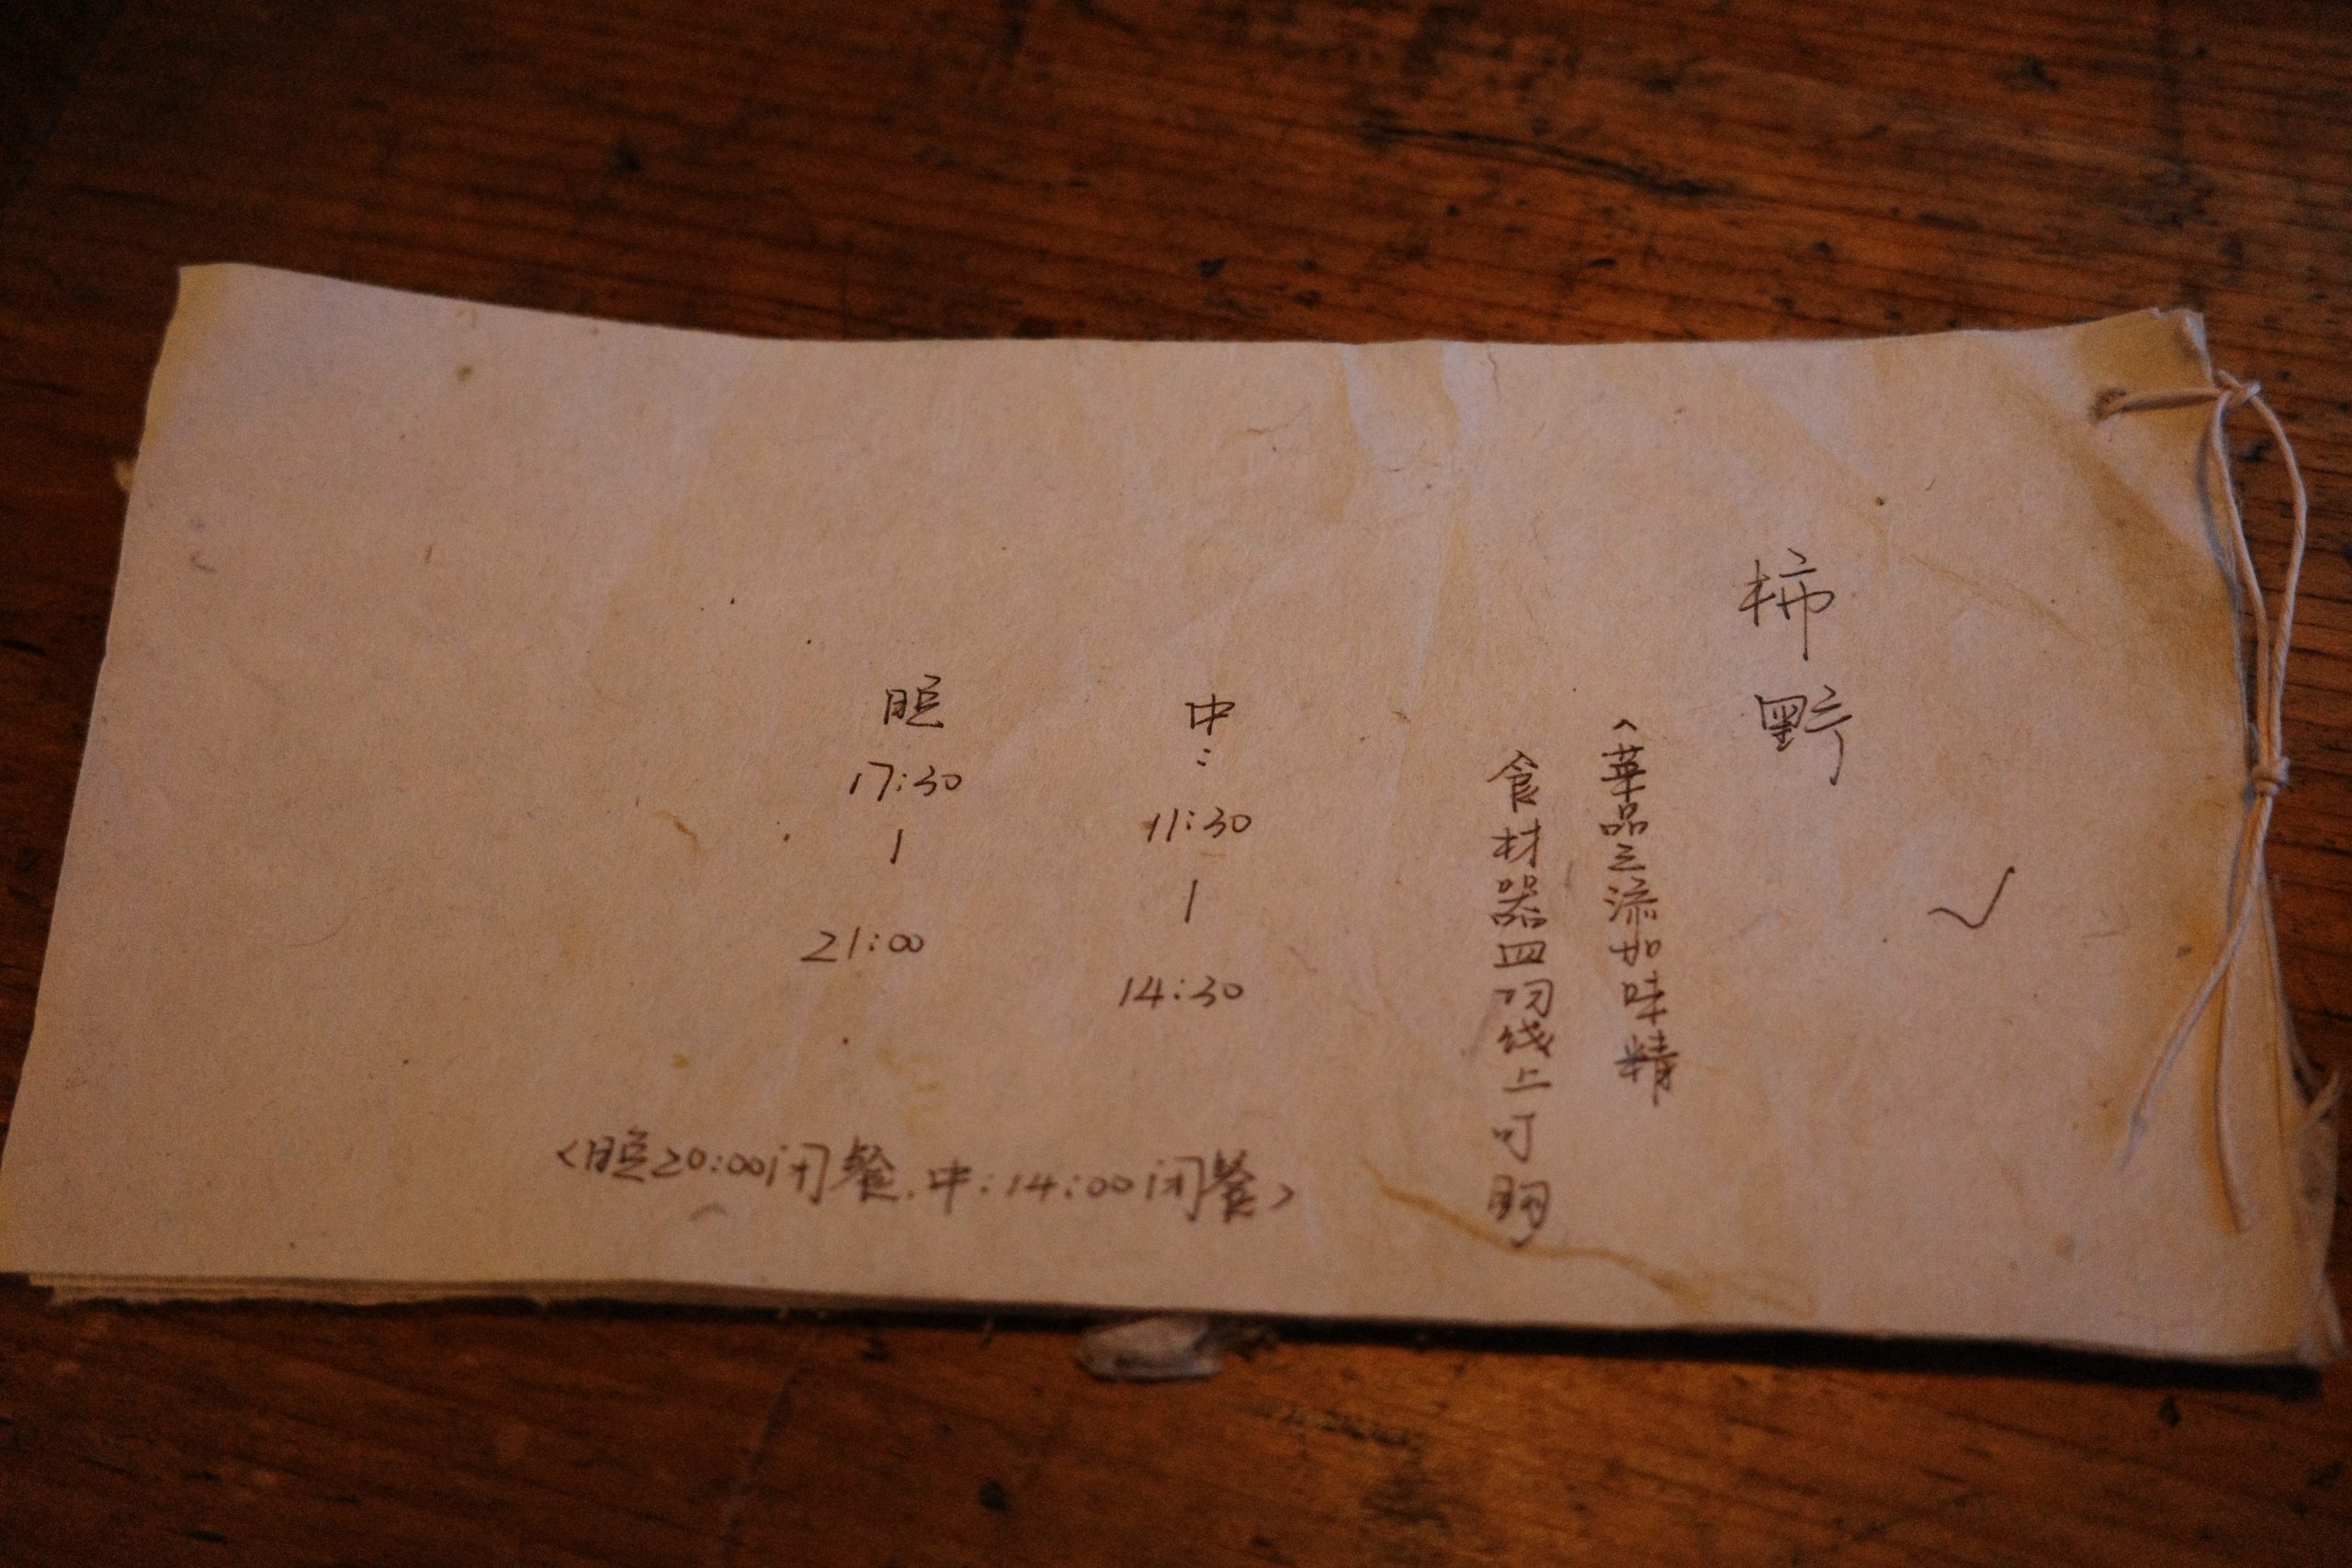 柿野
<菜品添加味精
食材器皿线上可
中:
11:30
|
14:30
晚
17:30
|
21:00
<晚20:00闭餐.中:14:00闭餐>